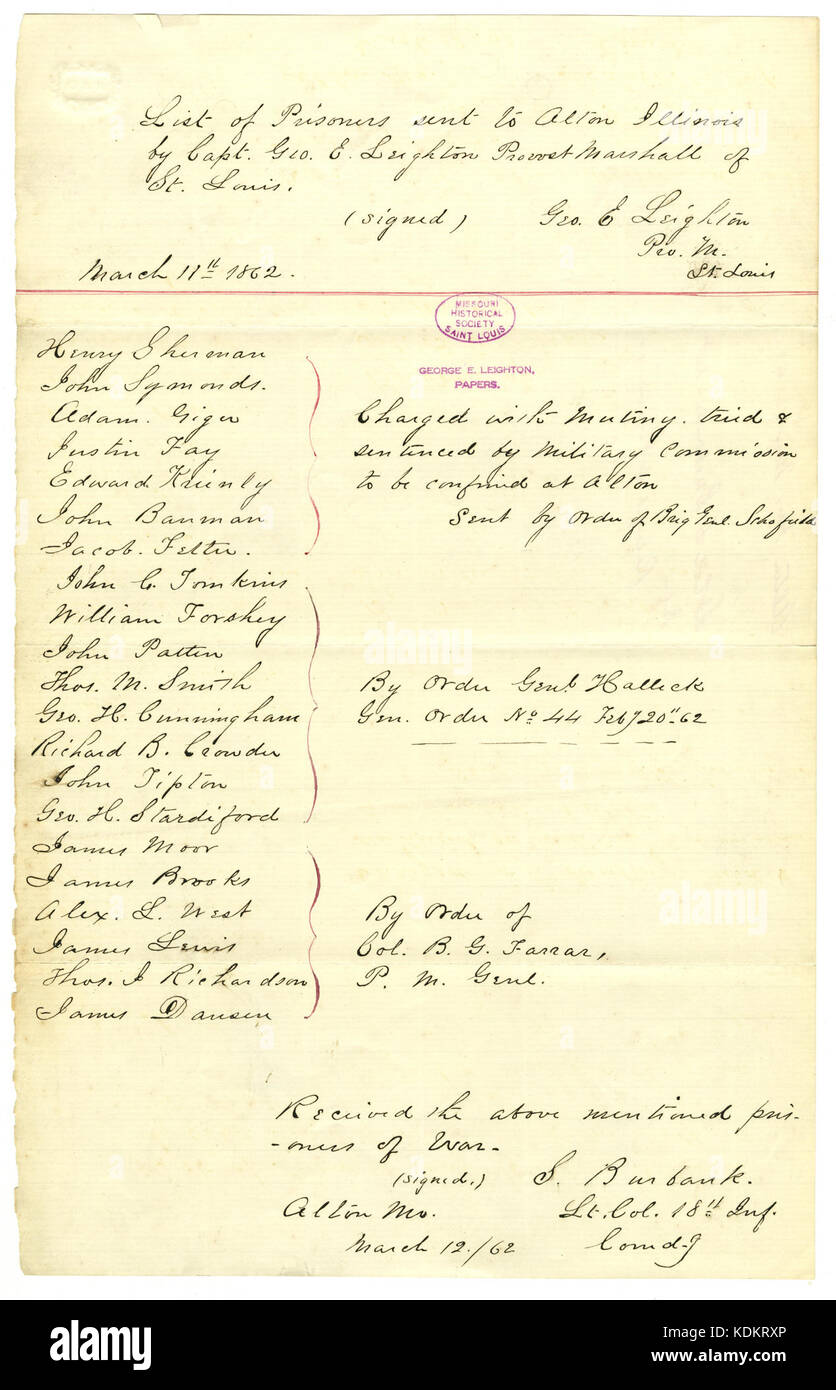 List of Prisoners sent to Alton Illinois
by Capt. Geo. E. Leighton Provost Marshall of
St. Louis.
(signed) Geo. E Leighton
Pro. M.
St. Louis
March 11th 1862.
MISSOURI
HISTORICAL
SOCIETY
SAINT LOUIS
GEORGE E. LEIGHTON,
PAPERS.
Henry Sherman
John Symonds.
Adam. Giger
Justin Fay
Edward
John Bauman
Jacob. Fetter.
Charged with Mutiny. tried &
sentenced by Military Commission
to be confined at Alton
Sent by order of Brig Genl. Schofield
John C. Tomkins
William Forshey
John Patten
Thos. M. Smith
Geo. H. Cunningham
Richard B. Crowder
John Tipton
Geo. H. Stardiford
By Order Genl. Halleck
Gen. Order No 44 Feby 20" 62
James Moor
James Brooks
Alex. L. West
James Lewis
Thos. J Richardson
James Dausen
By order of
Col. B. G. Farrar,
P. M. Genl.
Received the above mentioned pris-
-oners of War-
(signed.) S. Burbank.
Alton Mo. Lt. Col. 18th Inf.
March 12./62 Comd-g
alamy
Image ID: KDKRXP
www.alamy.com